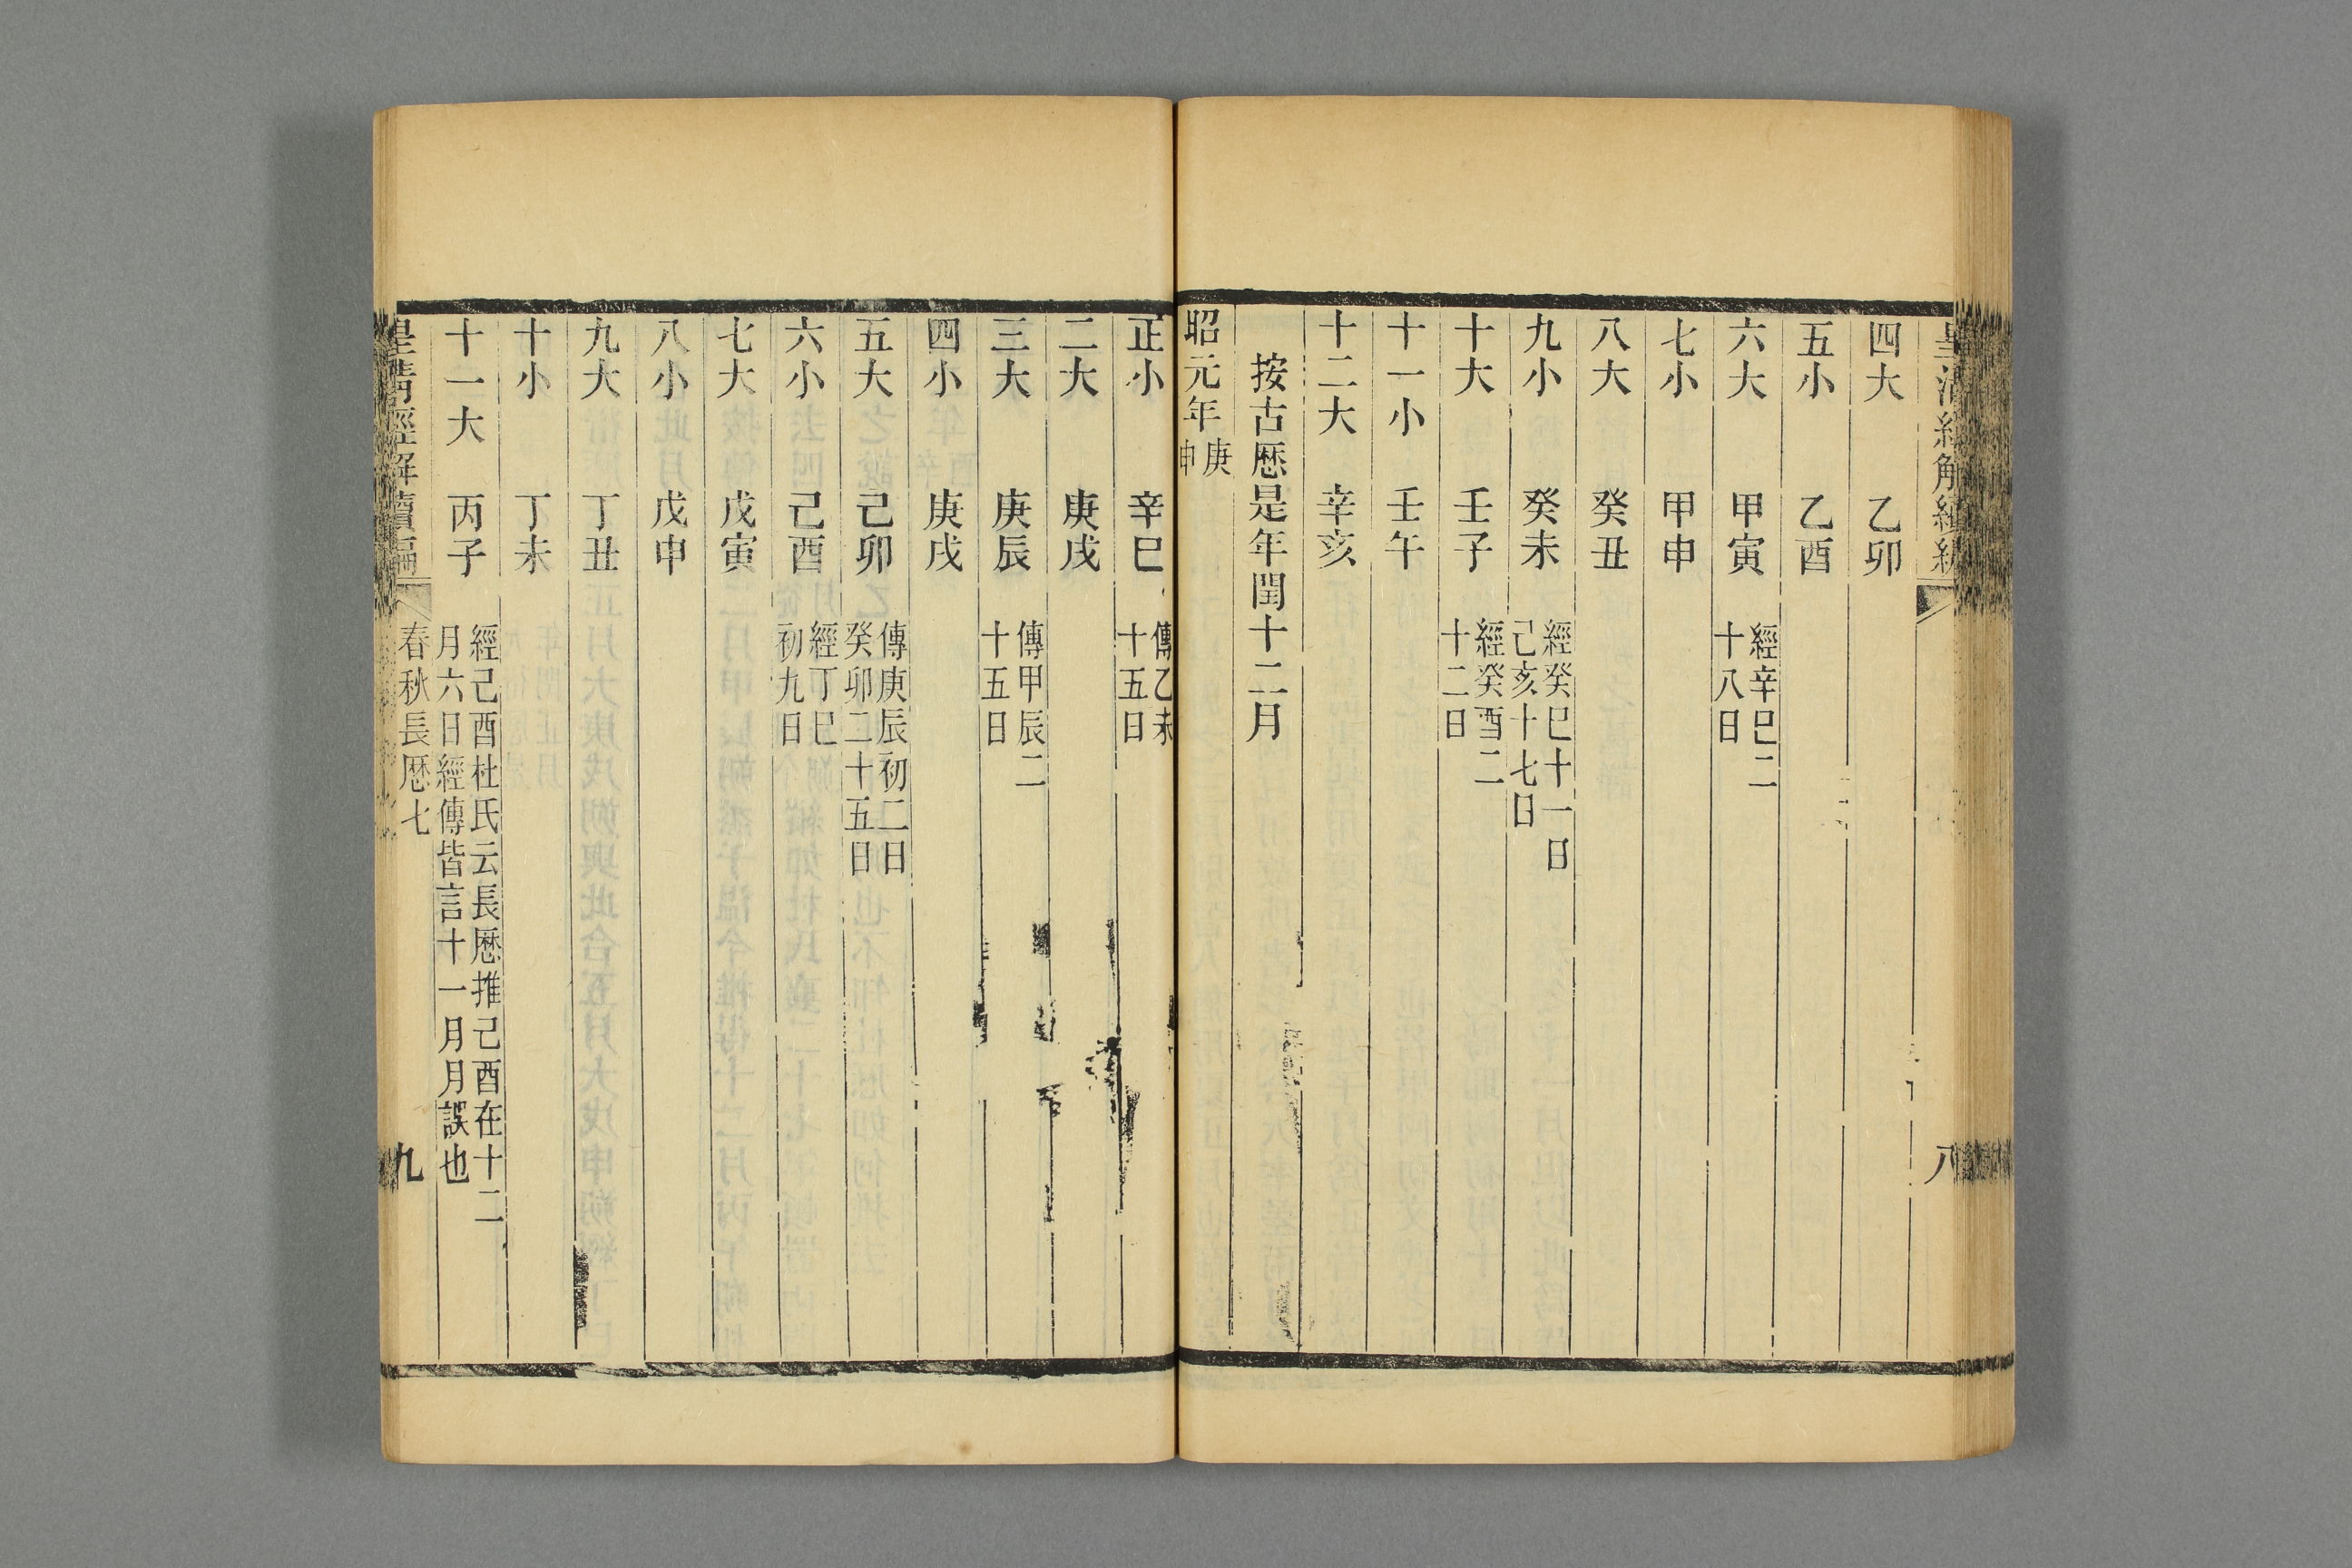 皇清經解續編
八
四大 乙卯
五小 乙酉
六大 甲寅 經辛巳二
十八日
七小 甲申
八大 癸丑
九小 癸未 經癸巳十一日
己亥十七日
十大 壬子 經癸酉二
十二日
十一小 壬午
十二大 辛亥
按古厯是年閏十二月
昭元年 庚
申
正小 辛巳 傳乙未
十五日
二大 庚戌
三大 庚辰 傳甲辰二
十五日
四小 庚戌
五大 己卯 傳庚辰初二日
癸卯二十五日
六小 己酉 經丁巳
初九日
七大 戊寅
八小 戊申
九大 丁丑
十小 丁未
十一大 丙子 經己酉杜氏云長厯推己酉在十二
月六日經傳皆言十一月月誤也
皇清經解續編 春秋長厯七 九